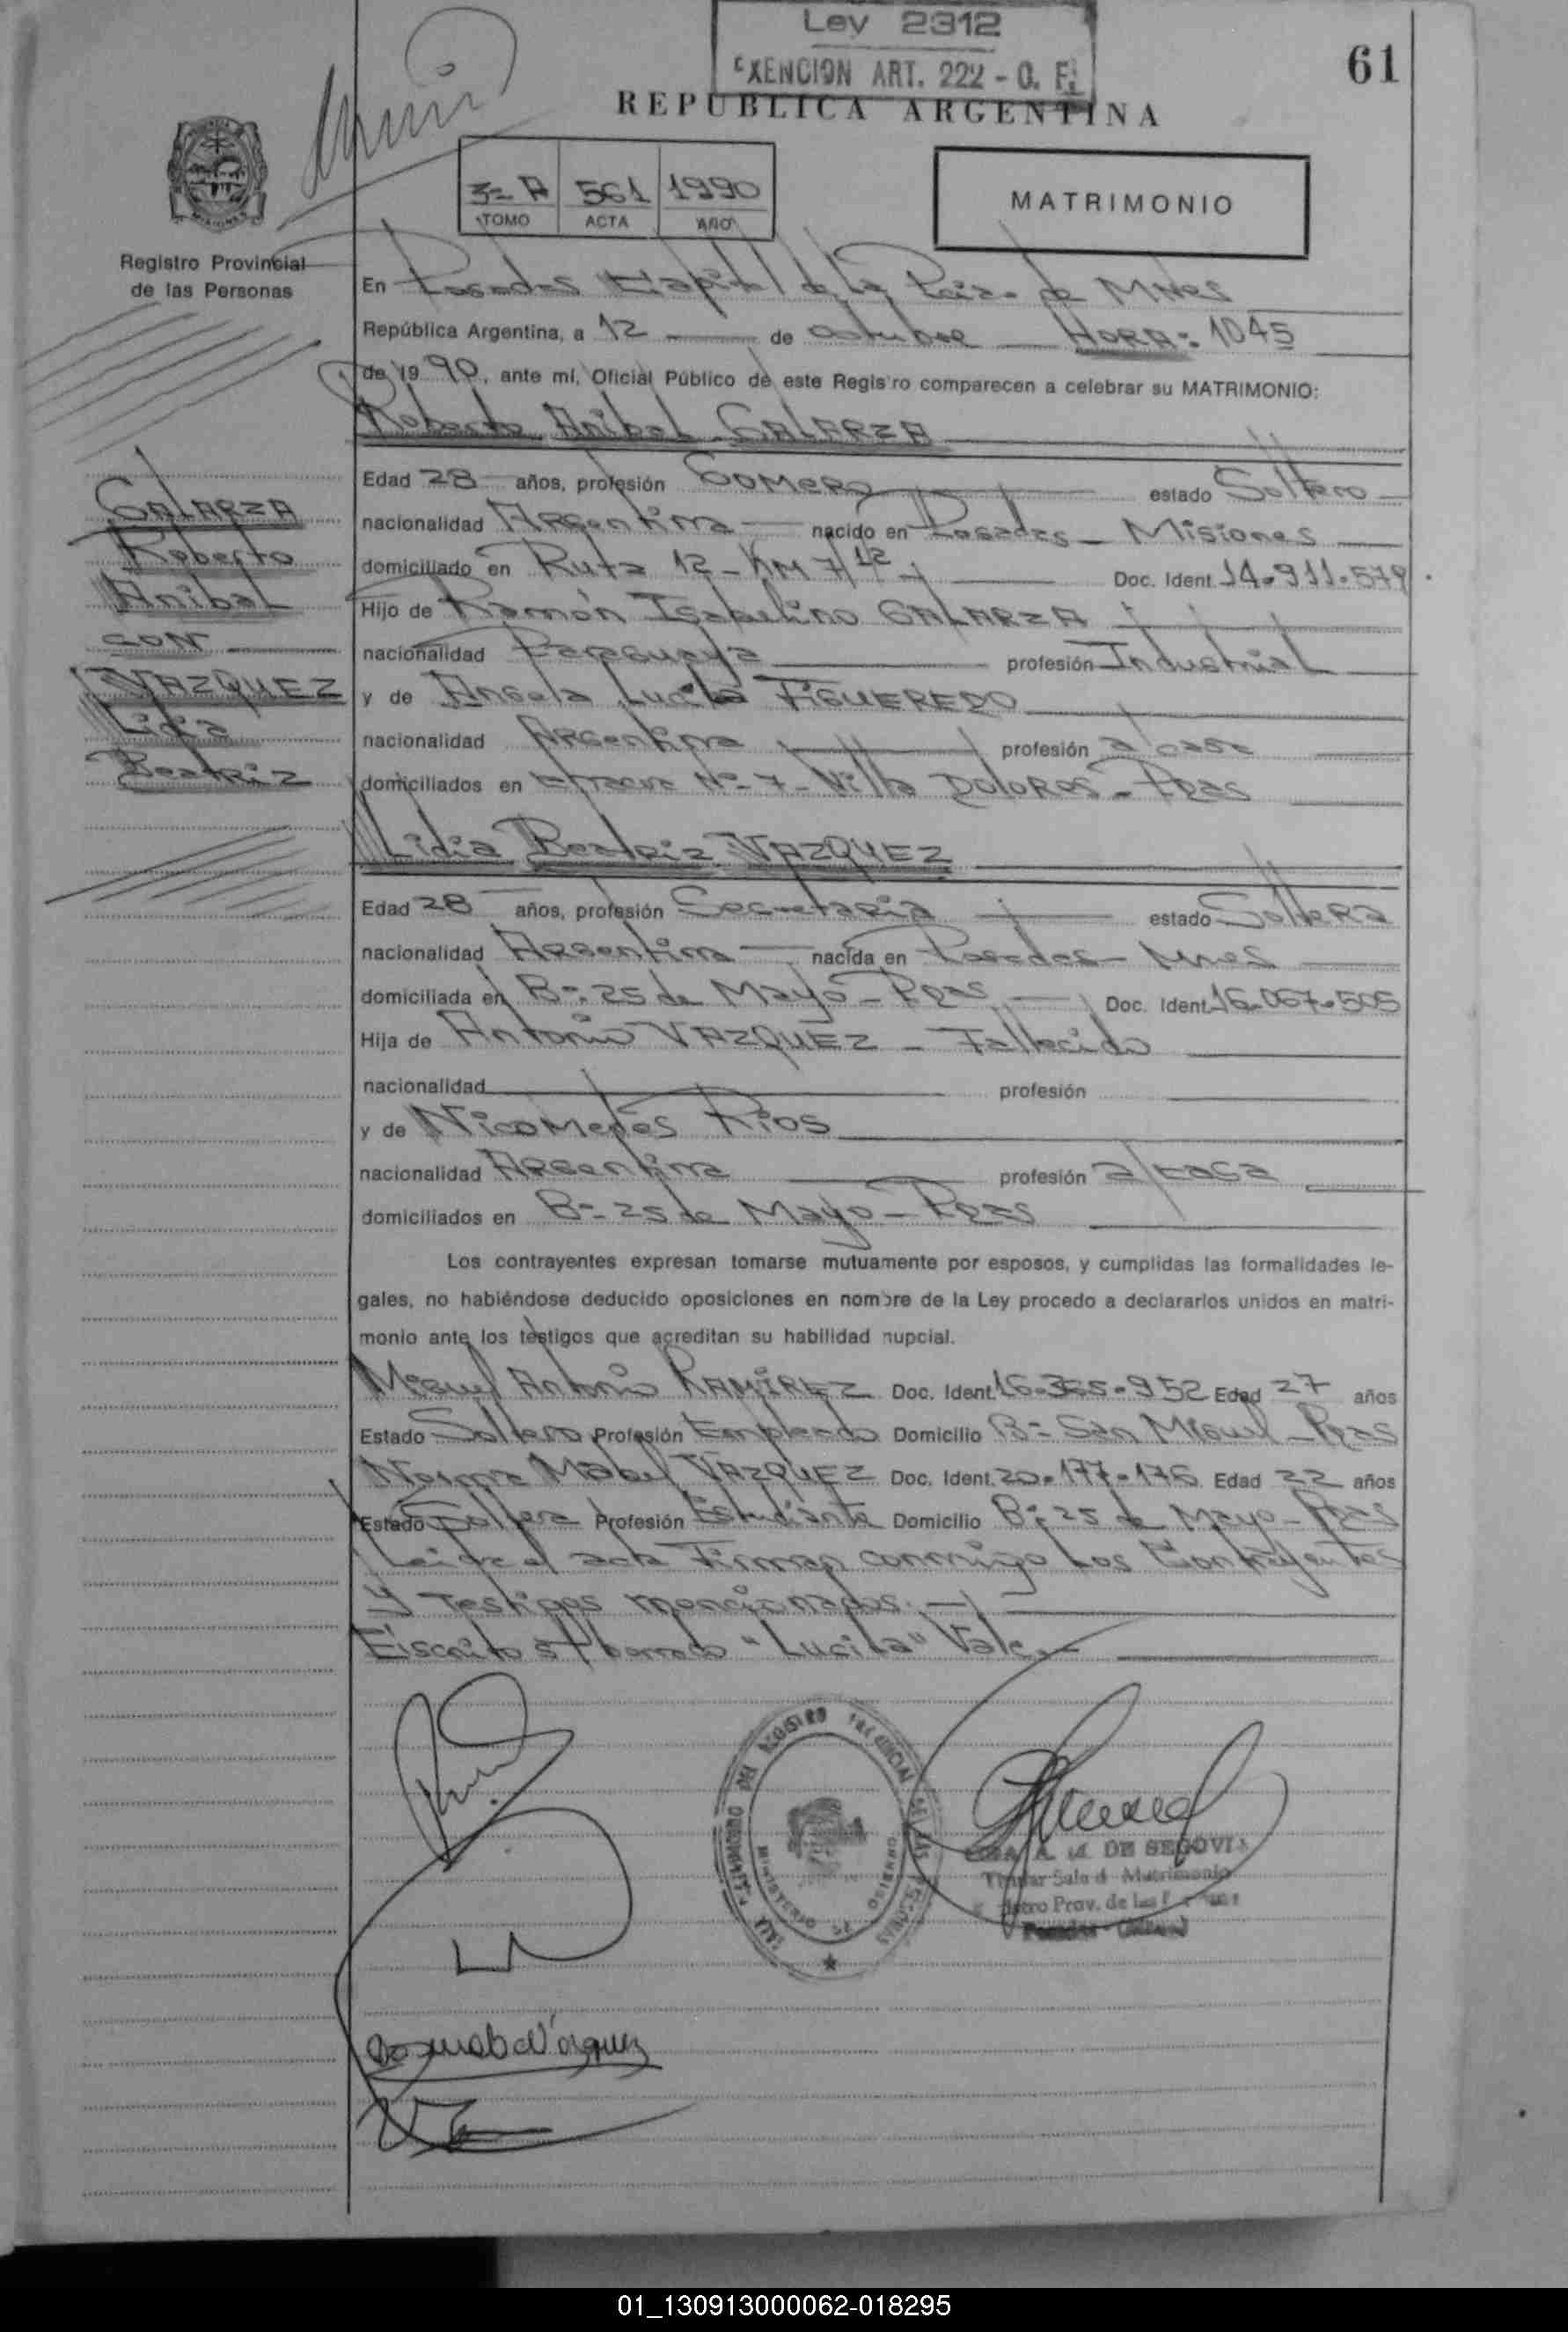 Ley 2312
EXENCION ART. 222 - O. F.
61
REPUBLICA ARGENTINA
3º A 561 1990
TOMO ACTA AÑO
MATRIMONIO
Registro Provincial
de las Personas
En Posadas Capital de la Pcia. de Mnes
República Argentina, a 12 de octubre HORA: 1045
de 1990, ante mí, Oficial Público de este Registro comparecen a celebrar su MATRIMONIO:
Roberto Anibal GALARZA
GALARZA
Roberto
Anibal
CON
VAZQUEZ
Lidia
Beatriz
Edad 28 años, profesión Gomero estado Soltero
nacionalidad Argentina nacido en Posadas - Misiones
domiciliado en Ruta 12 - KM 7 1/2 Doc. Ident. 14.911.579
Hijo de Ramón Isabelino GALARZA
nacionalidad Paraguaya profesión Industrial
y de Angela Lucila FIGUEREDO
nacionalidad Argentina profesión a/casa
domiciliados en Nº 7 - Villa DOLORES - Pdas
Lidia Beatriz VAZQUEZ
Edad 28 años, profesión Secretaria estado Soltera
nacionalidad Argentina nacida en Posadas - Mnes
domiciliada en Bº 25 de Mayo - Pdas Doc. Ident. 16.067.505
Hija de Antonio VAZQUEZ - Fallecido
nacionalidad profesión
y de Nicomedes Rios
nacionalidad Argentina profesión a/casa
domiciliados en Bº 25 de Mayo - Pdas
Los contrayentes expresan tomarse mutuamente por esposos, y cumplidas las formalidades le-
gales, no habiéndose deducido oposiciones en nombre de la Ley procedo a declararlos unidos en matri-
monio ante los testigos que acreditan su habilidad nupcial.
Miguel Antonio RAMIREZ Doc. Ident. 16.365.952 Edad 27 años
Estado Soltero Profesión Empleado Domicilio Bº San Miguel - Pdas
Norma Mabel VAZQUEZ Doc. Ident. 20.177.176 Edad 22 años
Estado Soltera Profesión Estudiante Domicilio Bº 25 de Mayo - Pdas
Leida el acta Firman conmigo Los Contrayentes
y Testigos mencionados.
Escrito s/ borrado "Lucila" Vale.
DEL REGISTRO PROVINCIAL DE LAS PERSONAS
MINISTERIO DE GOBIERNO
A. M. DE SEGOVIA
Titular Sala d Matrimonio
Prov. de las
Posadas
01_130913000062-018295